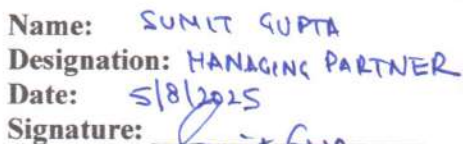 Name: SUMIT GUPTA
Designation: MANAGING PARTNER
Date: 5/8/2025
Signature: